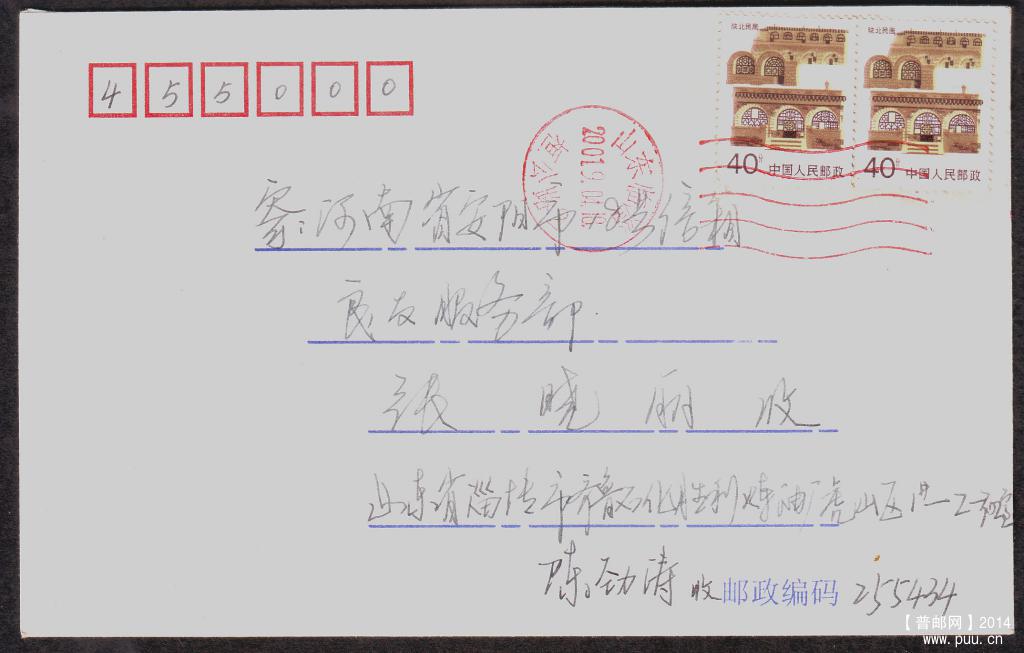 455000
陕北民居 陕北民居
40分 中国人民邮政 40分 中国人民邮政
山东
2001.9.01.16
寄:河南省安阳市18号信箱
良友服务部.
张晓丽收
山东省淄博市齐鲁石化胜利炼油厂虎山区
陈劲涛收 邮政编码 255434
【普邮网】2014
www.puu.cn